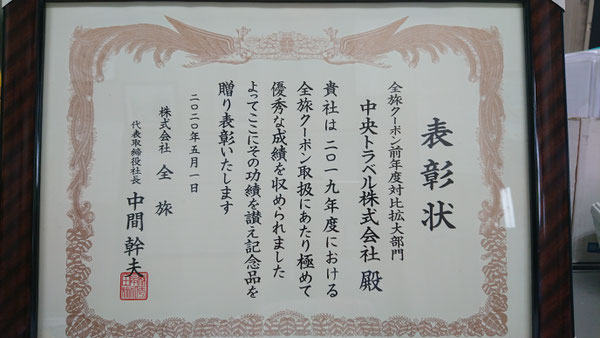 表彰状
全旅クーポン前年度対比拡大部門
中央トラベル株式会社 殿
貴社は二〇一九年度における
全旅クーポン取扱にあたり極めて
優秀な成績を収められました
よってここにその功績を讃え記念品を
贈り表彰いたします
二〇二〇年五月一日
株式会社 全旅
代表取締役社長 中間幹夫